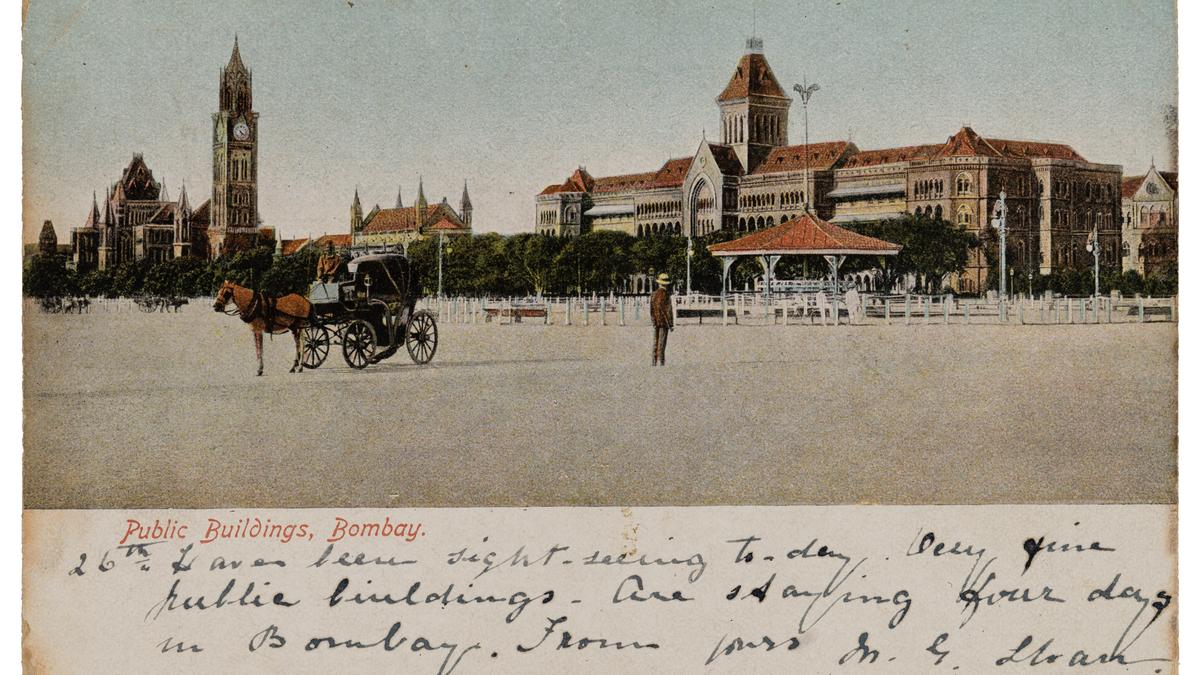 Public Buildings, Bombay.
26th. Have been sight-seeing to-day. Very fine
public buildings - Are staying four days
in Bombay. From yours M. G. Sloan.